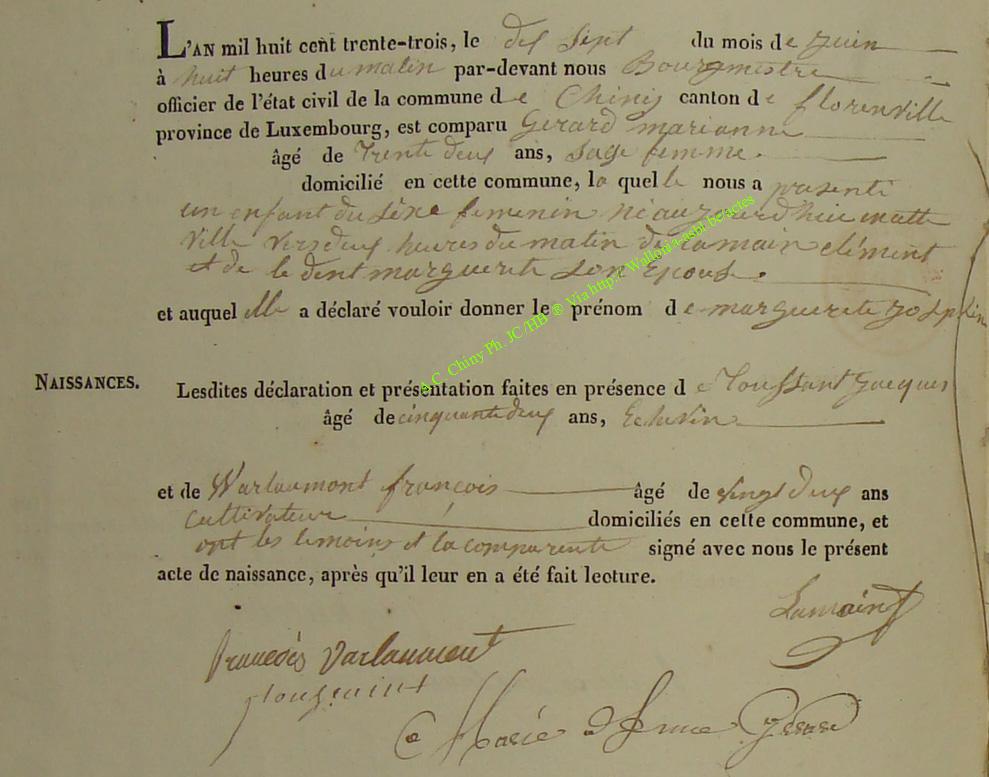 L'AN mil huit cent trente-trois, le dix sept du mois de juin
à huit heures du matin par-devant nous Bourgmestre
officier de l'état civil de la commune de Chiny canton de florenville
province de Luxembourg, est comparu Gerard marianne
âgé de Trente deux ans, sage femme.
domicilié en cette commune, laquelle nous a presenté
un enfant du sèxe femenin né aujourd'hui en cette
ville vers deux heures du matin de Lamain clément
et de le dent marguerite son epouse.
et auquel elle a déclaré vouloir donner le prénom de marguerite josephine
NAISSANCES.
Lesdites déclaration et présentation faites en présence de Toussant Jacques
âgé de cinquante deux ans, Echevin
et de Warlaumont françois âgé de vingt deux ans
cultivateur domiciliés en cette commune, et
ont les temoins et la comparente signé avec nous le présent
acte de naissance, après qu'il leur en a été fait lecture.
Lamain
francois Varlaumont
Toussaint
Marie Anne Gerard
A.C. Chiny Ph. JC/HB ® Via http:// Wallonia-asbl.be/actes